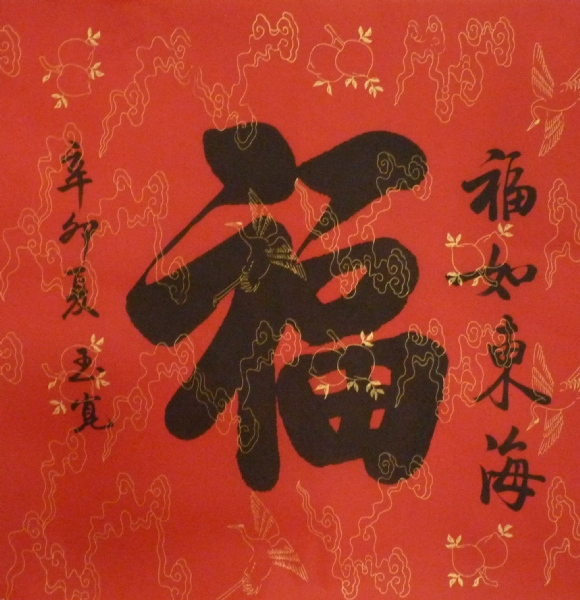 福如東海
福
辛卯夏 玉